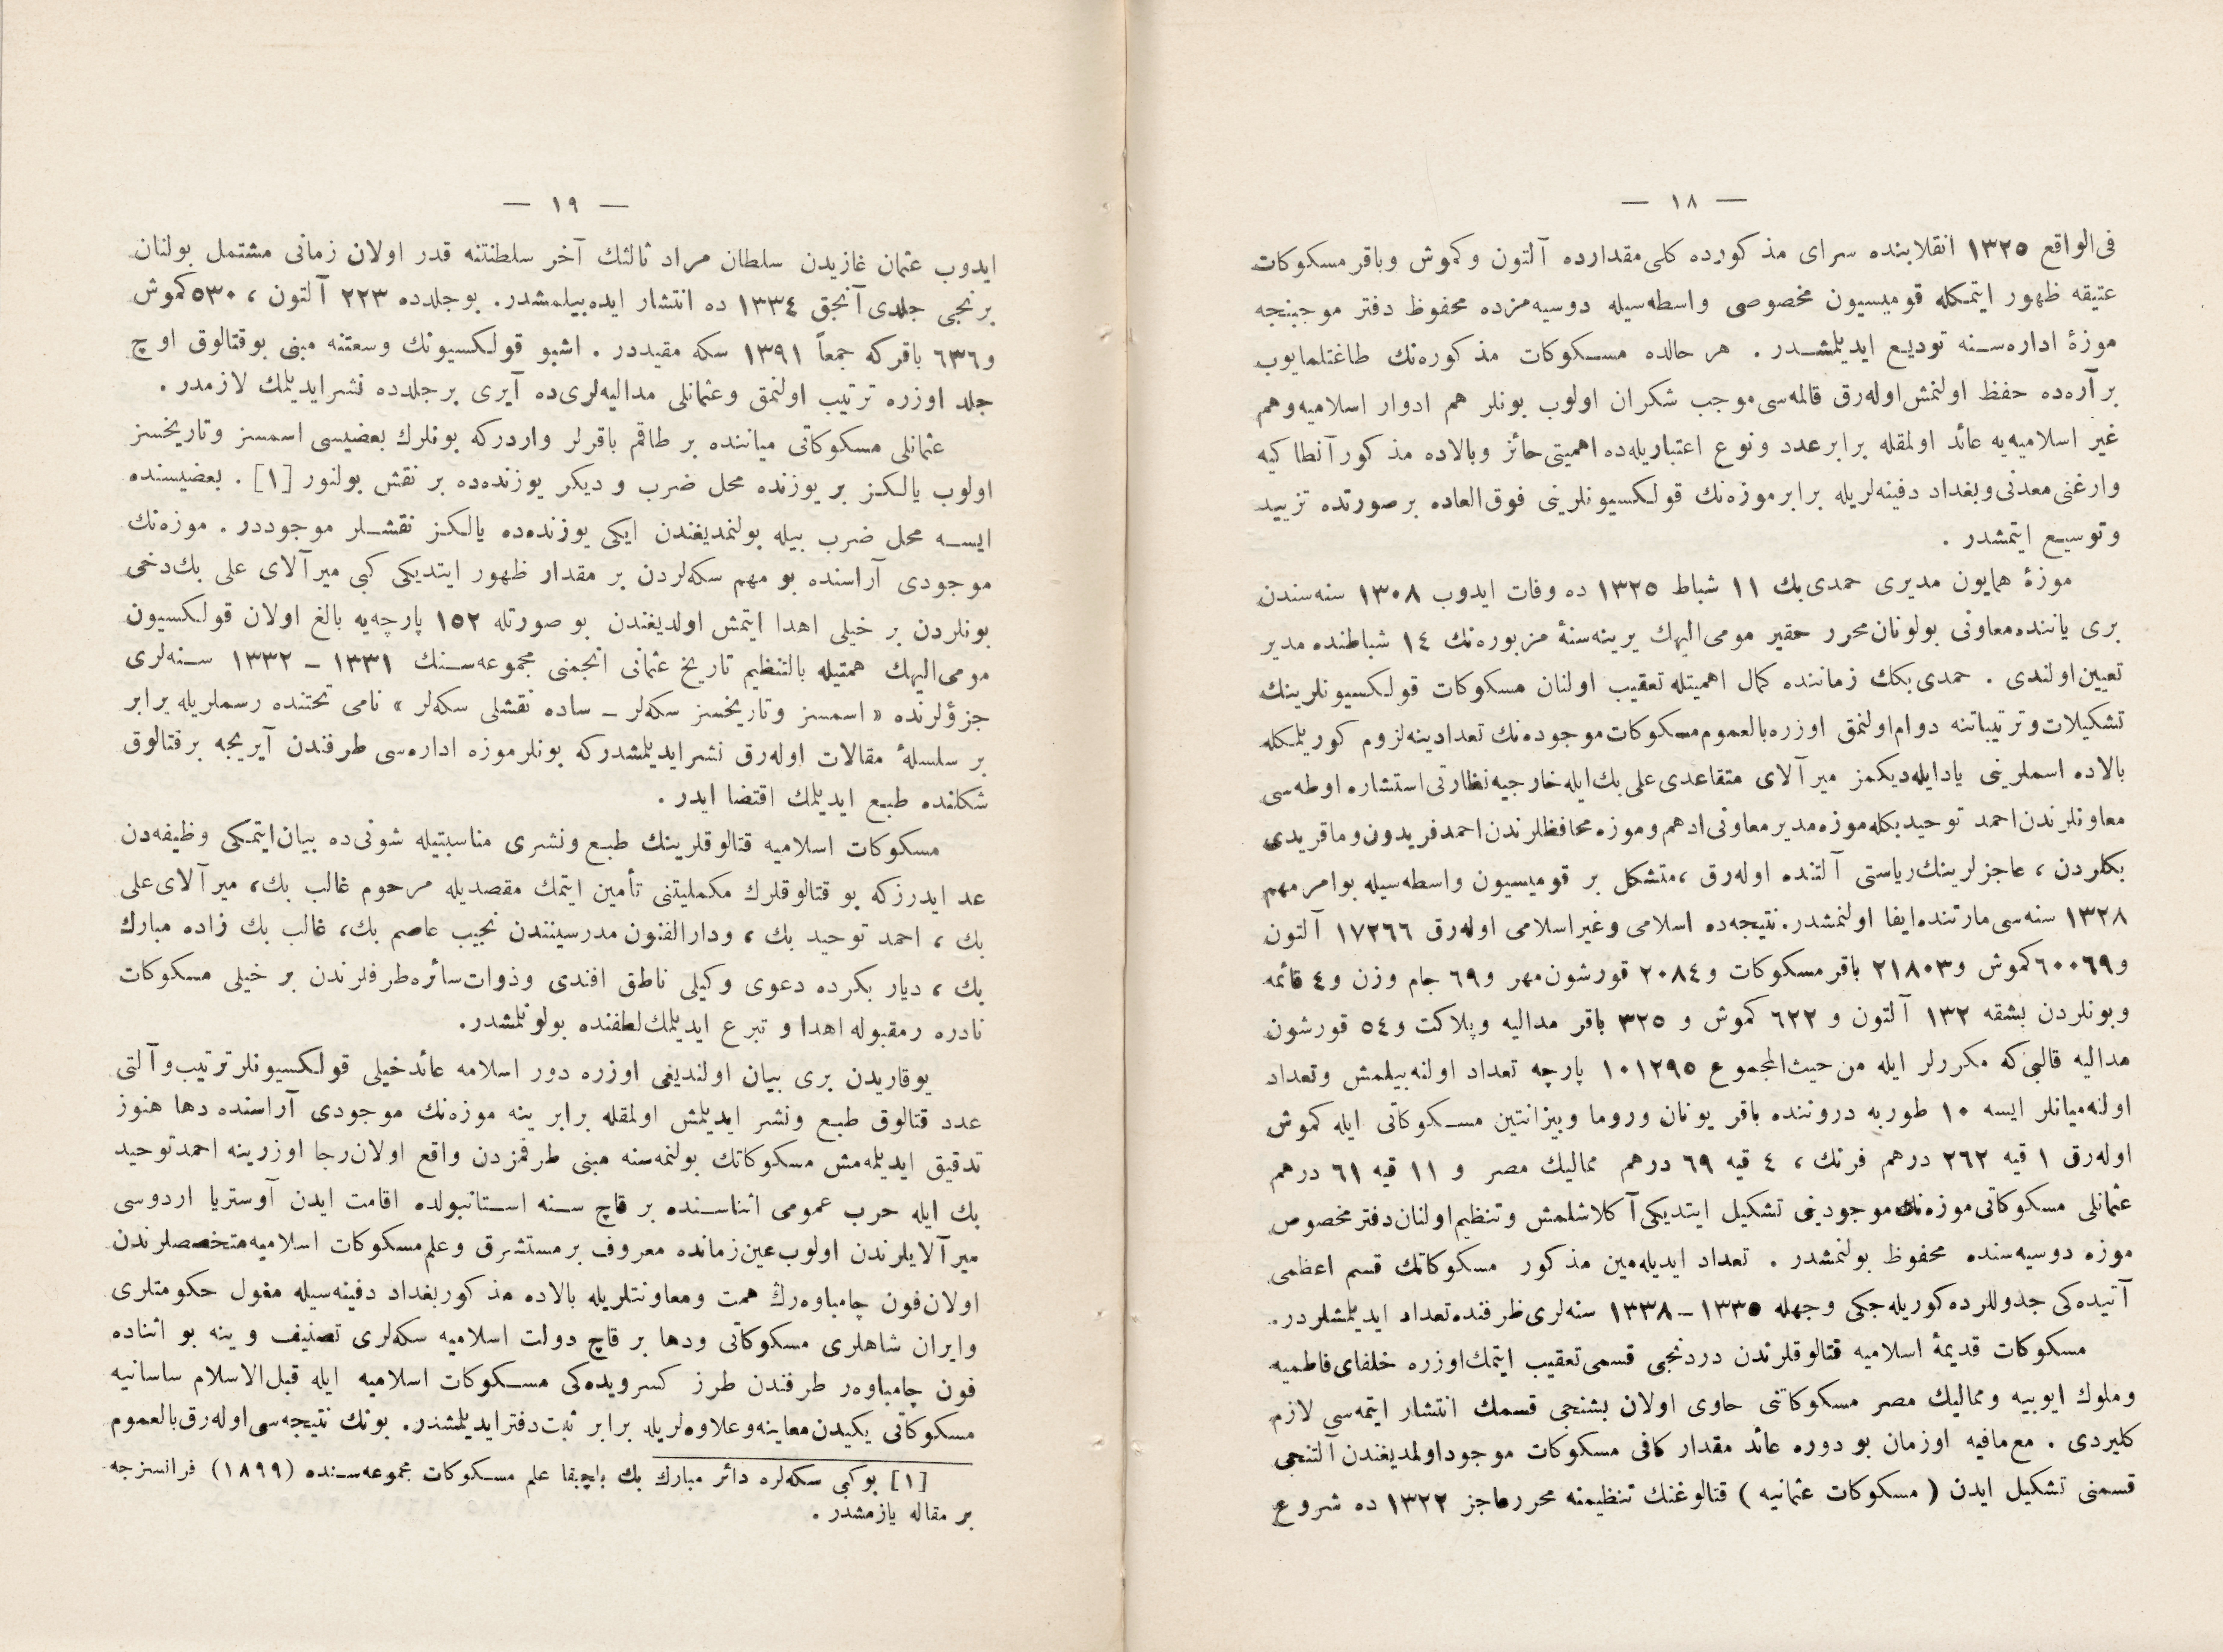 — ١٨ —
فی‌الواقع ١٣٢٥ انقلابنده سرای مذکورده کلی‌مقدارده آلتون وکموش وباقر مسکوکات
عتیقه ظهور ایتمکله قومیسیون مخصوصی واسطه‌سیله دوسیه‌مزده محفوظ دفتر موجبنجه
موزهٔ اداره‌سنه تودیع ایدیلمشدر . هر حالده مسکوکات مذکوره‌نك طاغتلمایوب
بر آره‌ده حفظ اولنمش‌اوله‌رق قالمه‌سی‌موجب شکران اولوب بونلر هم ادوار اسلامیه‌وهم
غیر اسلامیه‌یه عائد اولمقله برابر عدد ونوع اعتباریله‌ده اهمیتی‌حائز وبالاده مذکور آنطاکیه
وارغنی‌معدنی‌وبغداد دفینه‌لریله برابر موزه‌نك قولکسیونلرینی فوق‌العاده برصورتده تزیید
وتوسیع ایتمشدر .
موزهٔ همایون مدیری حمدی‌بك ١١ شباط ١٣٢٥ ده وفات ایدوب ١٣٠٨ سنه‌سندن
بری یاننده‌معاونی بولونان‌محرر حقیر مومی‌الیهك یرینه‌سنهٔ مزبوره‌نك ١٤ شباطنده مدیر
تعیین‌اولندی . حمدی‌بکك زماننده کمال اهمیتله تعقیب اولنان مسکوکات قولکسیونلرینك
تشکیلات‌وترتیباتنه دوام‌اولنمق اوزره‌بالعموم‌مسکوکات‌موجوده‌نك تعدادینه‌لزوم کوریلمکله
بالاده اسملرینی یادایله‌دیکمز میرآلای متقاعدی‌علی‌بك‌ایله‌خارجیه‌نظارتی‌استشاره اوطه‌سی
معاونلرندن‌احمد توحیدبکله‌موزه‌مدیر معاونی‌ادهم وموزه محافظلرندن‌احمدفریدون‌وماقریدی
بکلردن ، عاجزلرینك‌ریاستی آلتنده اوله‌رق ،متشکل بر قومیسیون واسطه‌سیله بوامر مهم
١٣٢٨ سنه‌سی‌مارتنده‌ایفا اولنمشدر. نتیجه‌ده اسلامی وغیراسلامی اوله‌رق ١٧٢٦٦ آلتون
و٦٠٠٦٩ کموش و٢١٨٠٣ باقر مسکوکات و٢٠٨٤ قورشون‌مهر و٦٩ جام وزن و٤ قائمه
وبونلردن بشقه ١٣٢ آلتون و ٦٢٢ کموش و ٣٢٥ باقر مدالیه وپلاکت و٥٤ قورشون
مدالیه قالبی‌که مکررلر ایله من‌حیث‌المجموع ١٠١٢٩٥ پارچه تعداد اولنه‌بیلمش وتعداد
اولنه‌میانلر ایسه ١٠ طوربه دروننده باقر یونان وروما وبیزانتین مسکوکاتی ایله کموش
اوله‌رق ١ قیه ٢٦٢ درهم فرنك ، ٤ قیه ٦٩ درهم ممالیك مصر و ١١ قیه ٦١ درهم
عثمانلی مسکوکاتی‌موزه‌نك‌موجودینی تشکیل ایتدیکی‌آکلاشلمش وتنظیم‌اولنان‌دفتر مخصوص
موزه دوسیه‌سنده محفوظ بولنمشدر . تعداد ایدیله‌مین مذکور مسکوکاتك قسم اعظمی
آتیده‌کی جدوللرده‌کوریله‌جکی وجهله ١٣٣٥ – ١٣٣٨ سنه‌لری‌ظرفنده‌تعداد ایدیلمشلردر.
مسکوکات قدیمهٔ اسلامیه قتالوقلرندن دردنجی قسمی‌تعقیب ایتمك‌اوزره خلفای‌فاطمیه
وملوك ایوبیه وممالیك مصر مسکوکاتنی حاوی اولان بشنجی قسمك انتشار ایتمه‌سی لازم
کلیردی . مع‌مافیه اوزمان بو دوره عائد مقدار کافی مسکوکات موجوداولمدیغندن آلتنجی
قسمنی تشکیل ایدن ( مسکوکات عثمانیه ) قتالوغنك تنظیمنه محررعاجز ١٣٢٢ ده شروع
— ١٩ —
ایدوب عثمان غازیدن سلطان مراد ثالثك آخر سلطنتنه قدر اولان زمانی مشتمل بولنان
برنجی جلدی آنجق ١٣٣٤ ده انتشار ایده‌بیلمشدر. بوجلدده ٢٢٣ آلتون ، ٥٣٠ کموش
و٦٣٦ باقرکه جمعاً ١٣٩١ سکه مقیددر . اشبو قولکسیونك وسعتنه مبنی بوقتالوق اوچ
جلد اوزره ترتیب اولنمق وعثمانلی مدالیه‌لری‌ده آیری برجلدده نشرایدیلمك لازمدر .
عثمانلی مسکوکاتی میاننده بر طاقم باقرلر واردرکه بونلرك بعضیسی اسمسز وتاریخسز
اولوب یالکز بر یوزنده محل ضرب و دیکر یوزنده‌ده بر نقش بولنور [١] . بعضیسنده
ایسه محل ضرب بیله بولنمدیغندن ایکی یوزنده‌ده یالکز نقشلر موجوددر . موزه‌نك
موجودی آراسنده بو مهم سکه‌لردن بر مقدار ظهور ایتدیکی کبی میرآلای علی بك‌دخی
بونلردن بر خیلی اهدا ایتمش اولدیغندن بو صورتله ١٥٢ پارچه‌یه بالغ اولان قولکسیون
مومی‌الیهك همتیله بالتنظیم تاریخ عثمانی انجمنی مجموعه‌سنك ١٣٣١ – ١٣٣٢ سنه‌لری
جزؤلرنده « اسمسز وتاریخسز سکه‌لر – ساده نقشلی سکه‌لر » نامی تحتنده رسملریله برابر
بر سلسلهٔ مقالات اوله‌رق نشرایدیلمشدرکه بونلرموزه اداره‌سی طرفندن آیریجه برقتالوق
شکلنده طبع ایدیلمك اقتضا ایدر .
مسکوکات اسلامیه قتالوقلرینك طبع ونشری مناسبتیله شونی‌ده بیان‌ایتمکی وظیفه‌دن
عد ایدرزکه بو قتالوقلرك مکملیتنی تأمین ایتمك مقصدیله مرحوم غالب بك، میرآلای‌علی
بك ، احمد توحید بك ، ودارالفنون مدرسیننندن نجیب عاصم بك، غالب بك زاده مبارك
بك ، دیار بکرده دعوی وکیلی ناطق افندی وذوات‌سائره‌طرفلرندن بر خیلی مسکوکات
نادره رمقبوله اهدا و تبرع ایدیلمك‌لطفنده بولونلمشدر.
یوقاریدن بری بیان اولندیغی اوزره دور اسلامه عائدخیلی قولکسیونلرترتیب‌وآلتی
عدد قتالوق طبع ونشر ایدیلمش اولمقله برابر ینه موزه‌نك موجودی آراسنده دها هنوز
تدقیق ایدیلمه‌مش مسکوکاتك بولنمه‌سنه مبنی طرفمزدن واقع اولان‌رجا اوزرینه احمدتوحید
بك ایله حرب عمومی اثناسنده بر قاچ سنه استانبولده اقامت ایدن آوستریا اردوسی
میرآلایلرندن اولوب‌عین‌زمانده معروف برمستشرق وعلم‌مسکوکات اسلامیه‌متخصصلرندن
اولان‌فون چامباوه‌رك همت ومعاونتلریله بالاده مذکوربغداد دفینه‌سیله مغول حکومتلری
وایران شاهلری مسکوکاتی ودها بر قاچ دولت اسلامیه سکه‌لری تصنیف وینه بو اثناده
فون چامباوه‌ر طرفندن طرز کسرویده‌کی مسکوکات اسلامیه ایله قبل‌الاسلام ساسانیه
مسکوکاتی یکیدن‌معاینه‌وعلاوه‌لریله برابر ثبت‌دفترایدیلمشدر. بونك نتیجه‌سی‌اوله‌رق‌بالعموم
[١] بوکبی سکه‌لره دائر مبارك بك بلچیقا علم مسکوکات مجموعه‌سنده (١٨٩٩) فرانسزجه
بر مقاله یازمشدر .